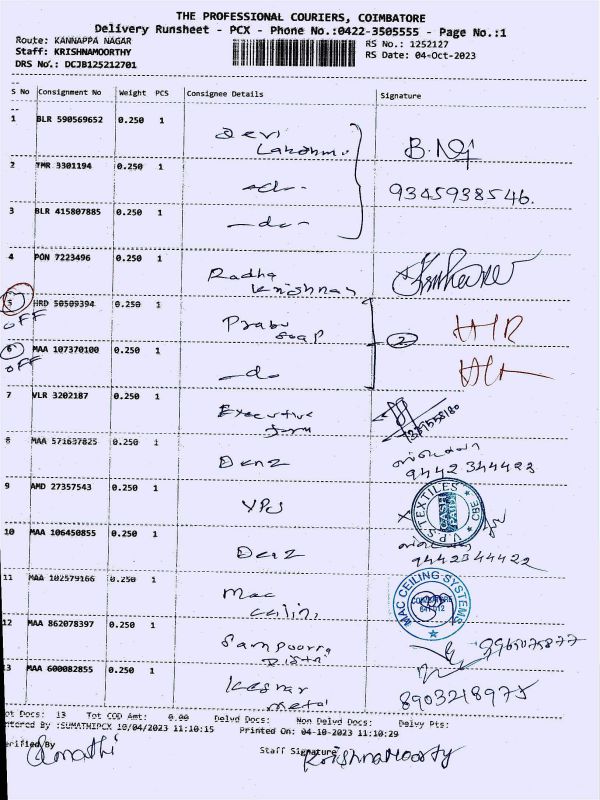 THE PROFESSIONAL COURIERS, COIMBATORE
Delivery Runsheet - PCX - Phone No.:0422-3505555 - Page No.:1
Route: KANNAPPA NAGAR
RS No.: 1252127
Staff: KRISHNAMOORTHY
RS Date: 04-Oct-2023
DRS No.: DCJB125212701
S No Consignment No Weight PCS Consignee Details Signature
1 BLR 590569652 0.250 1 Devi
Lakshmi B.
2 TMR 3301194 0.250 1 -do- 9345938546.
3 BLR 415807885 0.250 1 -do-
4 PON 7223496 0.250 1 Radha
Krishnan
5 HRD 50509394 0.250 1 Prabu
OFF Soap 2
6 MAA 107370100 0.250 1 -do-
OFF
7 VLR 3202187 0.250 1 Executive
form
8 MAA 571637825 0.250 1 Denz
9442344423
9 AMD 27357543 0.250 1 VPS
V.P.S TEXTILES CBE
10 MAA 106450855 0.250 1 Denz
9442344422
11 MAA 102579166 0.250 1 Mac
Ceilin,
MAC CEILING SYSTEMS
COIMBATORE
641 012
12 MAA 862078397 0.250 1 Sampoorna
9965075877
13 MAA 600082855 0.250 1 Keshar
metal 8903218975
ot Docs: 13 Tot COD Amt: 0.00 Delvd Docs: Non Delvd Docs: Delvy Pts:
ntered By :SUMATHIPCX 10/04/2023 11:10:15 Printed On: 04-10-2023 11:10:29
erified By Staff Signature KrishnaMoorty